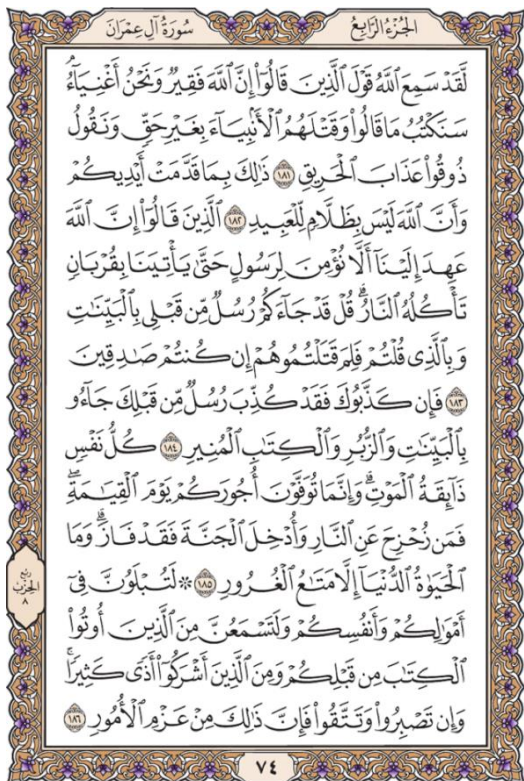 الجُزْءُ الرَّابِعُ
سُورَةُ آلِ عِمْرَانَ
لَّقَدْ سَمِعَ ٱللَّهُ قَوْلَ ٱلَّذِينَ قَالُوٓا۟ إِنَّ ٱللَّهَ فَقِيرٌ وَنَحْنُ أَغْنِيَآءُ ۘ
سَنَكْتُبُ مَا قَالُوا۟ وَقَتْلَهُمُ ٱلْأَنۢبِيَآءَ بِغَيْرِ حَقٍّ وَنَقُولُ
ذُوقُوا۟ عَذَابَ ٱلْحَرِيقِ ١٨١ ذَٰلِكَ بِمَا قَدَّمَتْ أَيْدِيكُمْ
وَأَنَّ ٱللَّهَ لَيْسَ بِظَلَّامٍ لِّلْعَبِيدِ ١٨٢ ٱلَّذِينَ قَالُوٓا۟ إِنَّ ٱللَّهَ
عَهِدَ إِلَيْنَآ أَلَّا نُؤْمِنَ لِرَسُولٍ حَتَّىٰ يَأْتِيَنَا بِقُرْبَانٍ
تَأْكُلُهُ ٱلنَّارُ ۗ قُلْ قَدْ جَآءَكُمْ رُسُلٌ مِّن قَبْلِى بِٱلْبَيِّنَٰتِ
وَبِٱلَّذِى قُلْتُمْ فَلِمَ قَتَلْتُمُوهُمْ إِن كُنتُمْ صَٰدِقِينَ
١٨٣ فَإِن كَذَّبُوكَ فَقَدْ كُذِّبَ رُسُلٌ مِّن قَبْلِكَ جَآءُو
بِٱلْبَيِّنَٰتِ وَٱلزُّبُرِ وَٱلْكِتَٰبِ ٱلْمُنِيرِ ١٨٤ كُلُّ نَفْسٍ
ذَآئِقَةُ ٱلْمَوْتِ ۗ وَإِنَّمَا تُوَفَّوْنَ أُجُورَكُمْ يَوْمَ ٱلْقِيَٰمَةِ ۖ
فَمَن زُحْزِحَ عَنِ ٱلنَّارِ وَأُدْخِلَ ٱلْجَنَّةَ فَقَدْ فَازَ ۗ وَمَا
ٱلْحَيَوٰةُ ٱلدُّنْيَآ إِلَّا مَتَٰعُ ٱلْغُرُورِ ١٨٥ ۞ لَتُبْلَوُنَّ فِىٓ
أَمْوَٰلِكُمْ وَأَنفُسِكُمْ وَلَتَسْمَعُنَّ مِنَ ٱلَّذِينَ أُوتُوا۟
ٱلْكِتَٰبَ مِن قَبْلِكُمْ وَمِنَ ٱلَّذِينَ أَشْرَكُوٓا۟ أَذًى كَثِيرًا ۚ
وَإِن تَصْبِرُوا۟ وَتَتَّقُوا۟ فَإِنَّ ذَٰلِكَ مِنْ عَزْمِ ٱلْأُمُورِ ١٨٦
رُبْعُ
الحِزْب
٨
٧٤